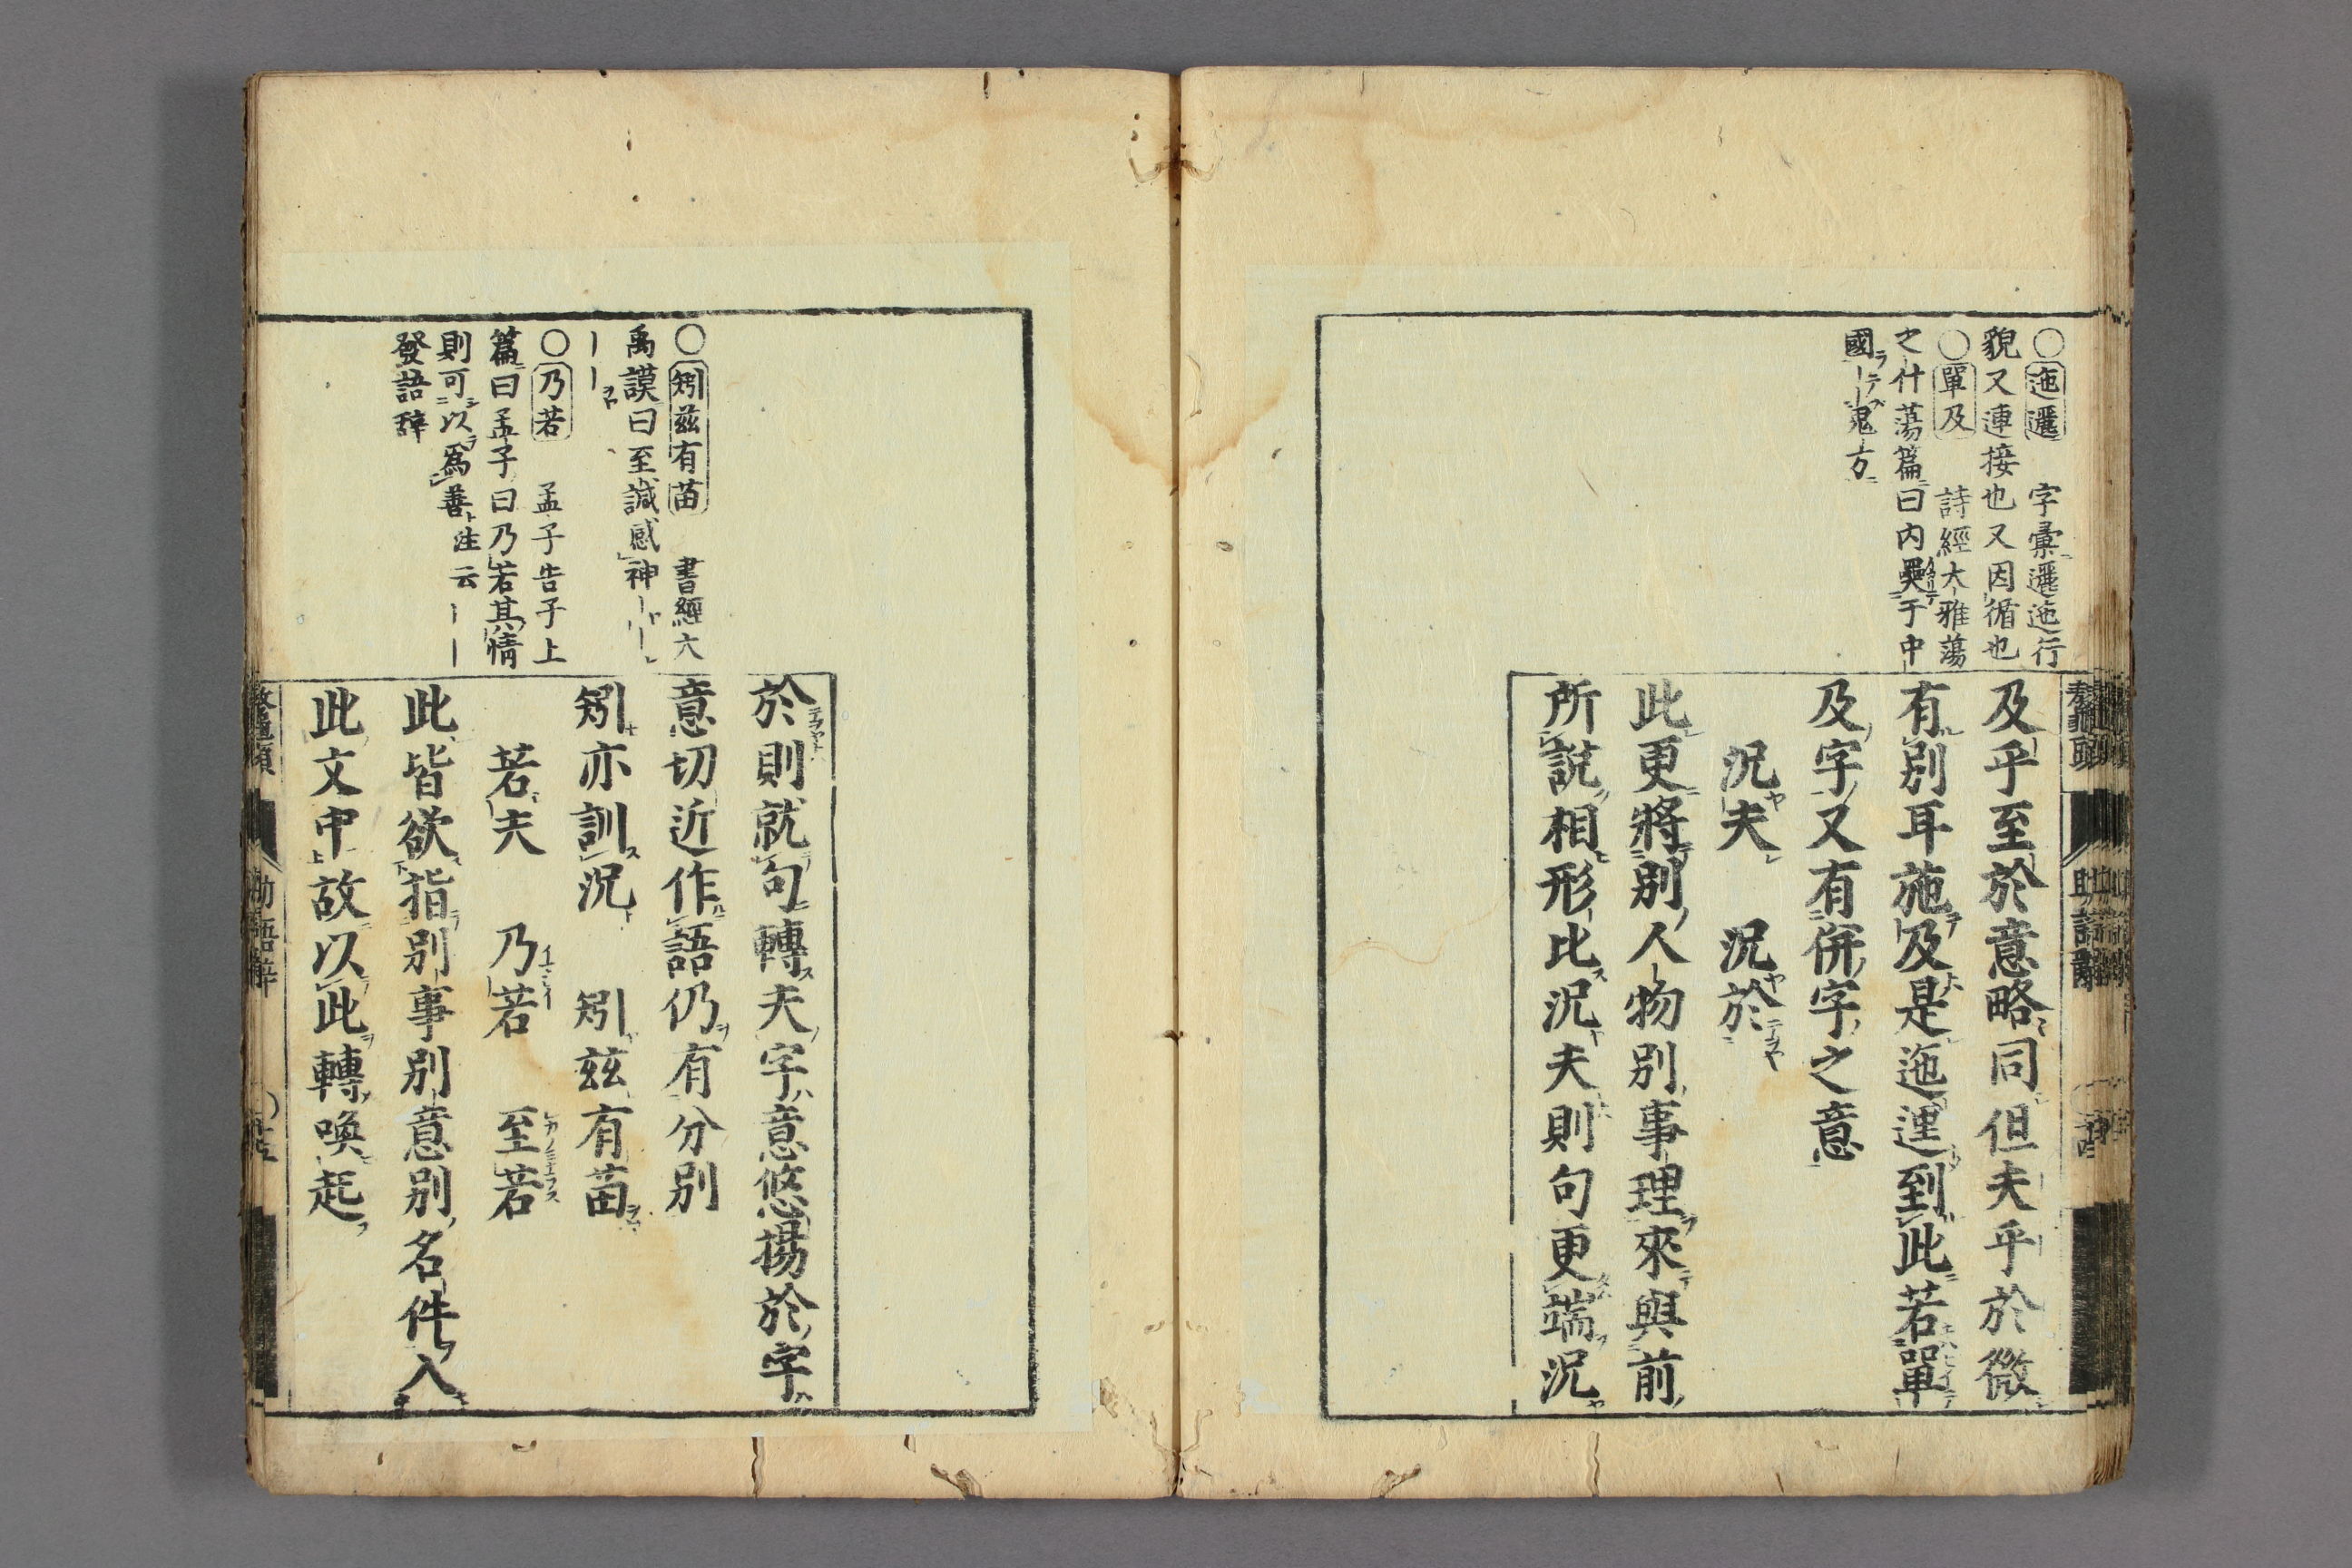 ○迤邐　字彙邐迤行
貌又連接也又因循也
○單及　詩經大雅蕩
之什蕩篇曰内奰于中
國ーー鬼方
及乎至於意略同但夫乎於微
有別耳施及是迤邐到此若單
及字又有併字之意
況夫　況於
此更將別人物別事理來與前
所説相形比況夫則句更端況
○矧兹有苗　書經大
禹謨曰至諴感神ーー
ーー
○乃若　孟子告子上
篇曰孟子曰乃若其情
則可以爲善注云ーー
發語辞
於則就句轉夫字意悠揚於字
意切近作語仍有分別
矧亦訓況　矧兹有苗
若夫　乃若　至若
此皆欲指別事別意別名件入
此文中故以此轉喚起